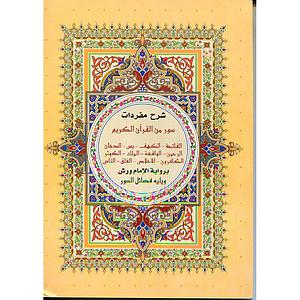 شرح مفردات
سور من القرآن الكريم
الفاتحة - الكهف - يس - الدخان
الرحمن - الواقعة - الملك - الكوثر
الكافرون - الإخلاص - الفلق - الناس
برواية الإمام ورش
ويليه فضائل السور